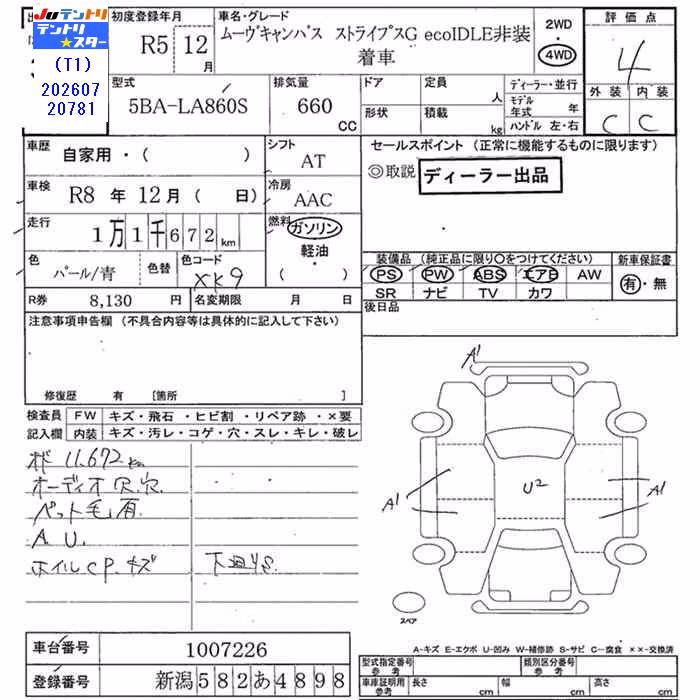 Juテントリ
テントリ★スター
(T1)
202607
20781
初度登録年月
R5 12月
車名・グレード
ムーヴキャンバス ストライプスG ecoIDLE非装着車
2WD
・
4WD
評価点
4
外装 内装
C C
型式
5BA-LA860S
排気量
660 CC
ドア
形状
定員 人
積載 kg
ディーラー・並行
モデル年式 年
ハンドル 左・右
車歴
自家用・( )
シフト
AT
車検
R8年12月( 日)
冷房
AAC
走行
1万1千672km
燃料
ガソリン
・
軽油
( )
色
パール/青
色替
色コード
XK9
R券 8,130 円
名変期限 月 日
セールスポイント (正常に機能するものに限ります)
◎取説 ディーラー出品
装備品 (純正品に限り○をつけてください)
PS PW ABS エアB AW
SR ナビ TV カワ
新車保証書
有・無
後日品
注意事項申告欄 (不具合内容等は具体的に記入して下さい)
修復歴 有 [箇所 ]
検査員記入欄
FW キズ・飛石・ヒビ割・リペア跡・×要
内装 キズ・汚レ・コゲ・穴・スレ・キレ・破レ
11,672km
オーディオ穴.穴.
ペット毛有.
A.U.
ホイルCP.キズ
下廻りS.
A1
A1
U2
A1
スペア
A-キズ E-エクボ U-凹み W-補修跡 S-サビ C-腐食 ××-交換済
車台番号 1007226
登録番号 新潟582あ4898
型式指定番号 参考
類別区分番号 参考
車庫証明用 参考
長さ cm
幅 cm
高さ cm